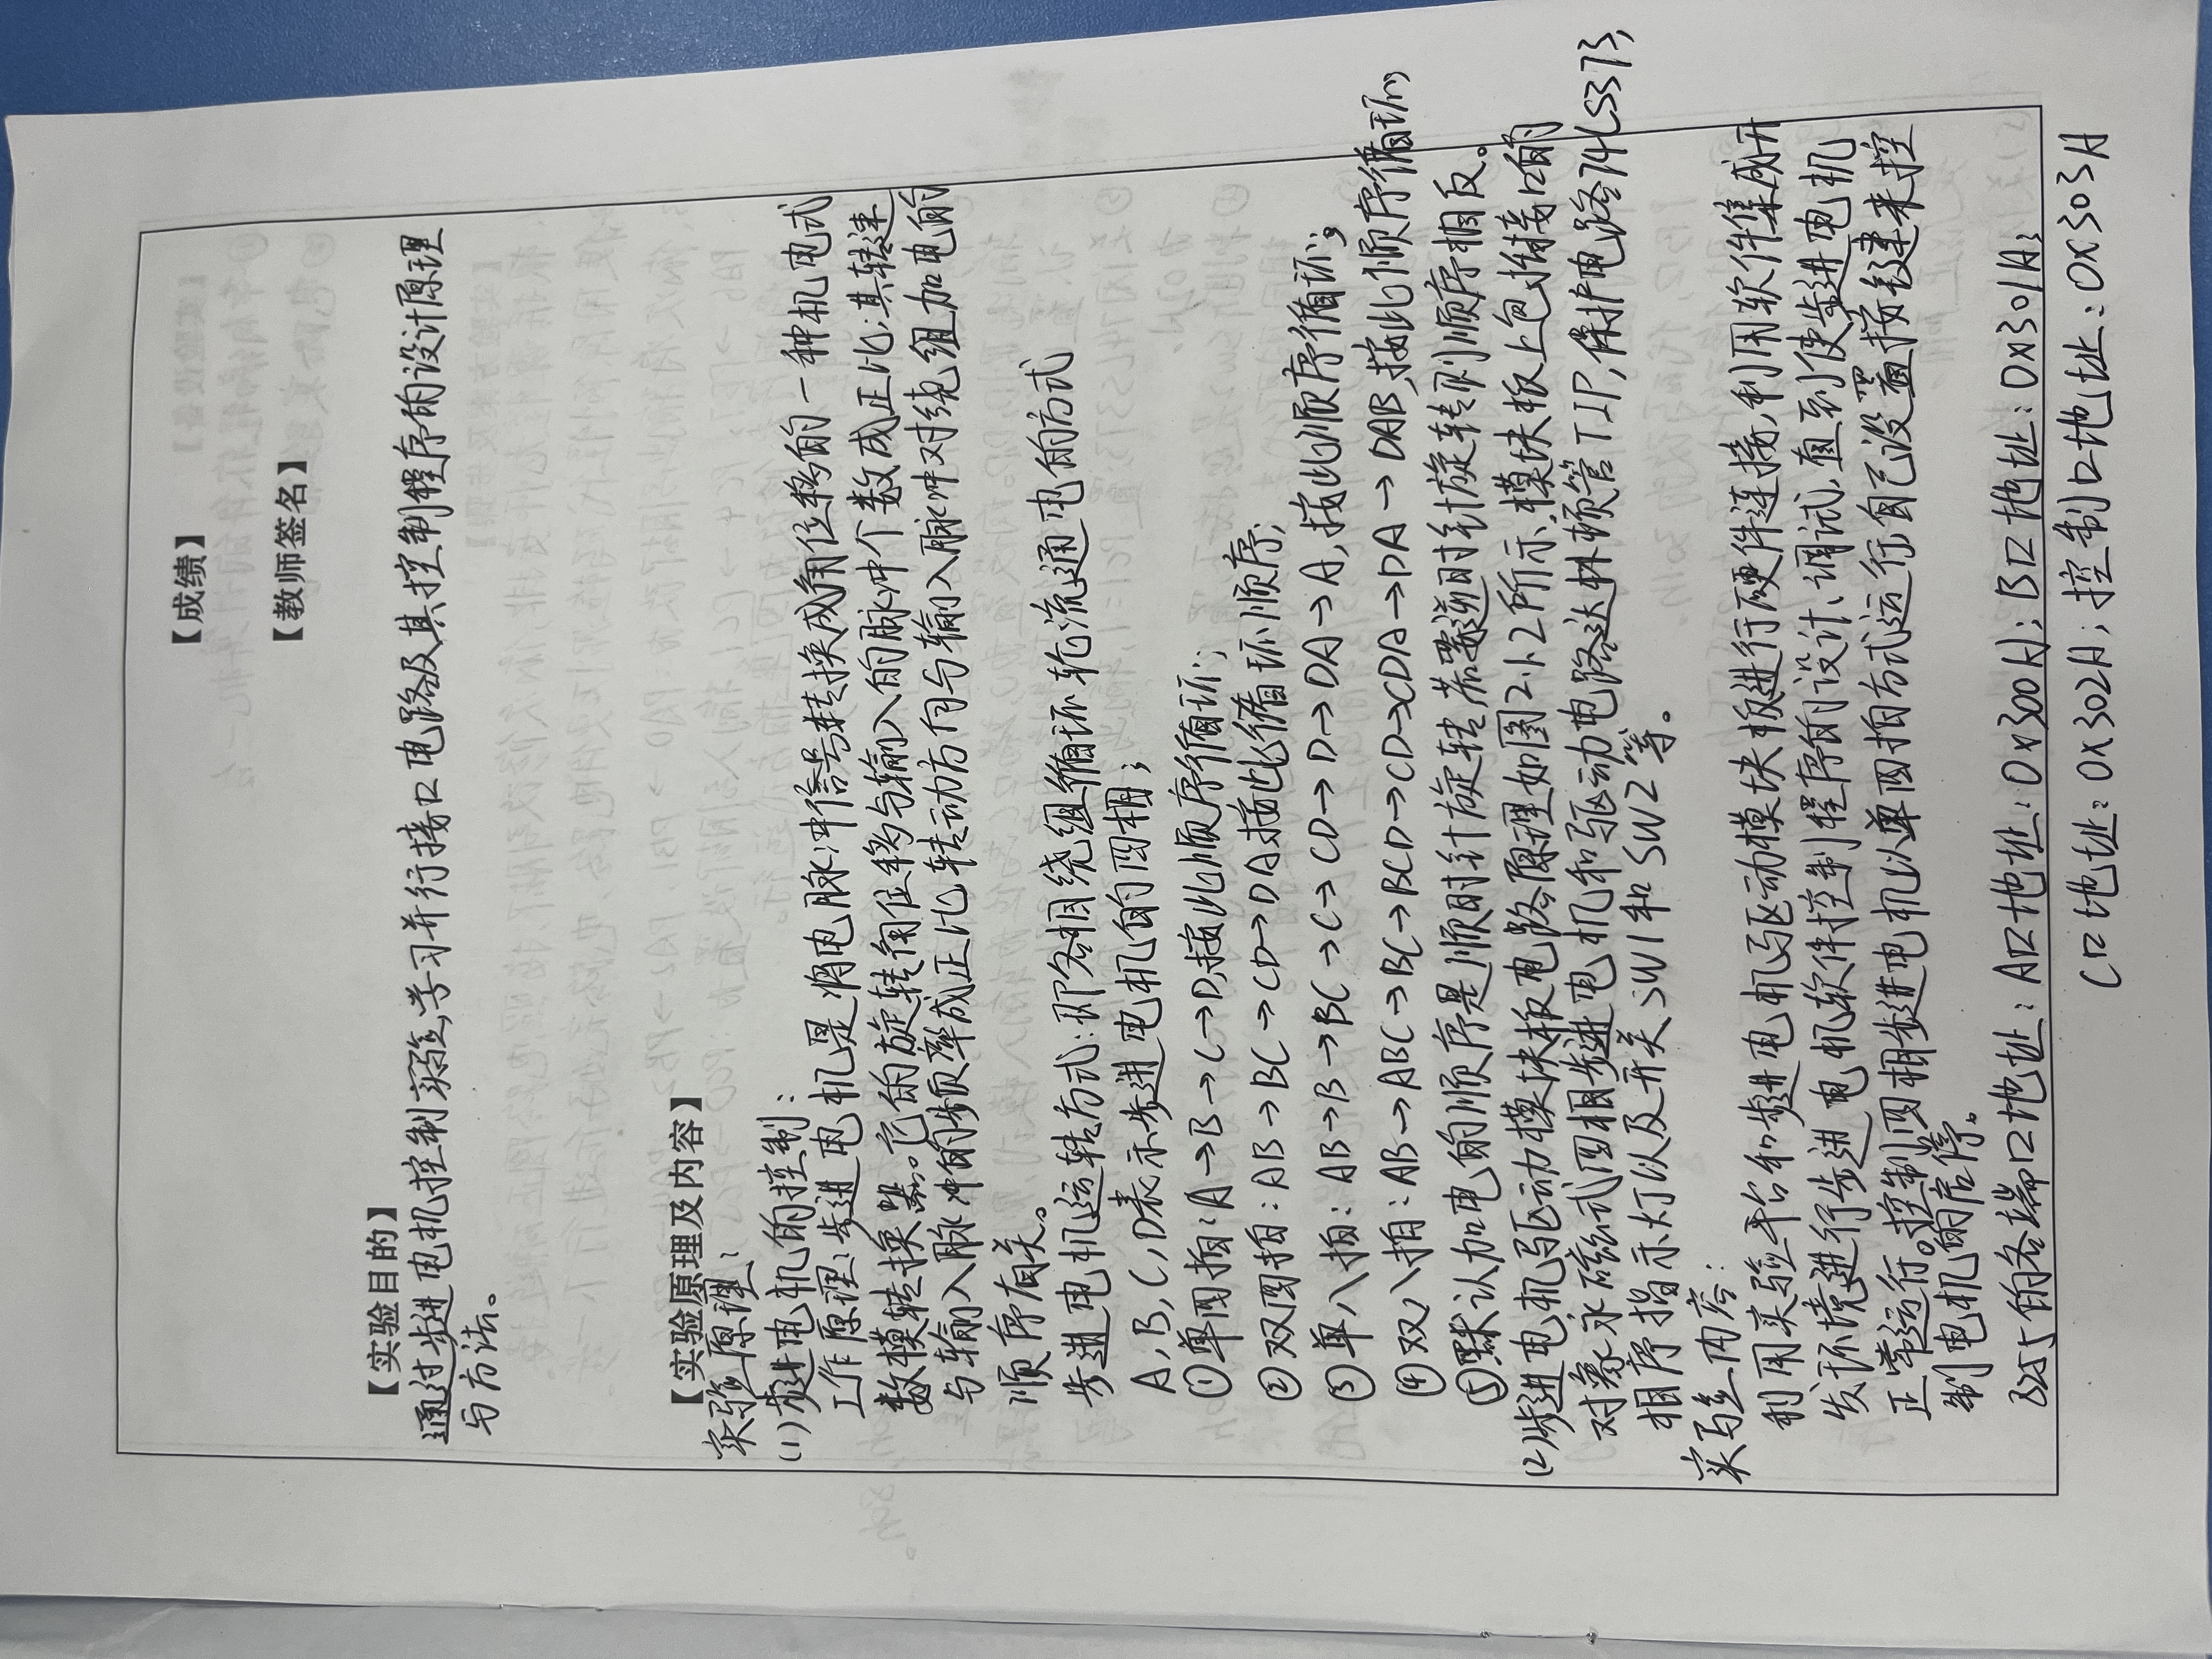 【成绩】
【教师签名】
【实验目的】
通过步进电机控制实验,学习并行接口电路及其控制程序的设计原理
与方法。
【实验原理及内容】
实验原理:
(1)步进电机的控制:
工作原理:步进电机是将电脉冲信号转换成角位移的一种机电式
数模转换器。它的旋转角位移与输入的脉冲个数成正比;其转速
与输入脉冲的频率成正比;转动方向与输入脉冲对绕组加电的
顺序有关。
步进电机运转方式:即各相绕组循环轮流通电的方式
A,B,C,D表示步进电机的四相;
①单四拍:A→B→C→D,按此顺序循环;
②双四拍:AB→BC→CD→DA按此循环顺序;
③单八拍:AB→B→BC→C→CD→D→DA→A,按此顺序循环;
④双八拍:AB→ABC→BC→BCD→CD→CDA→DA→DAB,按此顺序循环;
⑤默认加电的顺序是顺时针旋转若要逆时针旋转则顺序相反。
(2)步进电机驱动模块板电路原理如图2.1.2所示,模块板上包括接口的
对象永磁式四相步进电机和驱动电路达林顿管TIP,保护电路74LS373,
相序指示灯以及开关SW1和SW2等。
实验内容:
利用实验平台和步进电机驱动模块板进行硬件连接,利用软件集成开
发环境进行步进电机软件控制程序的设计、调试,直到使步进电机
正常运行。控制四相步进电机以单四拍方式运行,自己设置按键来控
制电机的启停。
8255的各端口地址:A口地址:0x300H;B口地址:0x301H;
C口地址:0x302H;控制口地址:0x303H